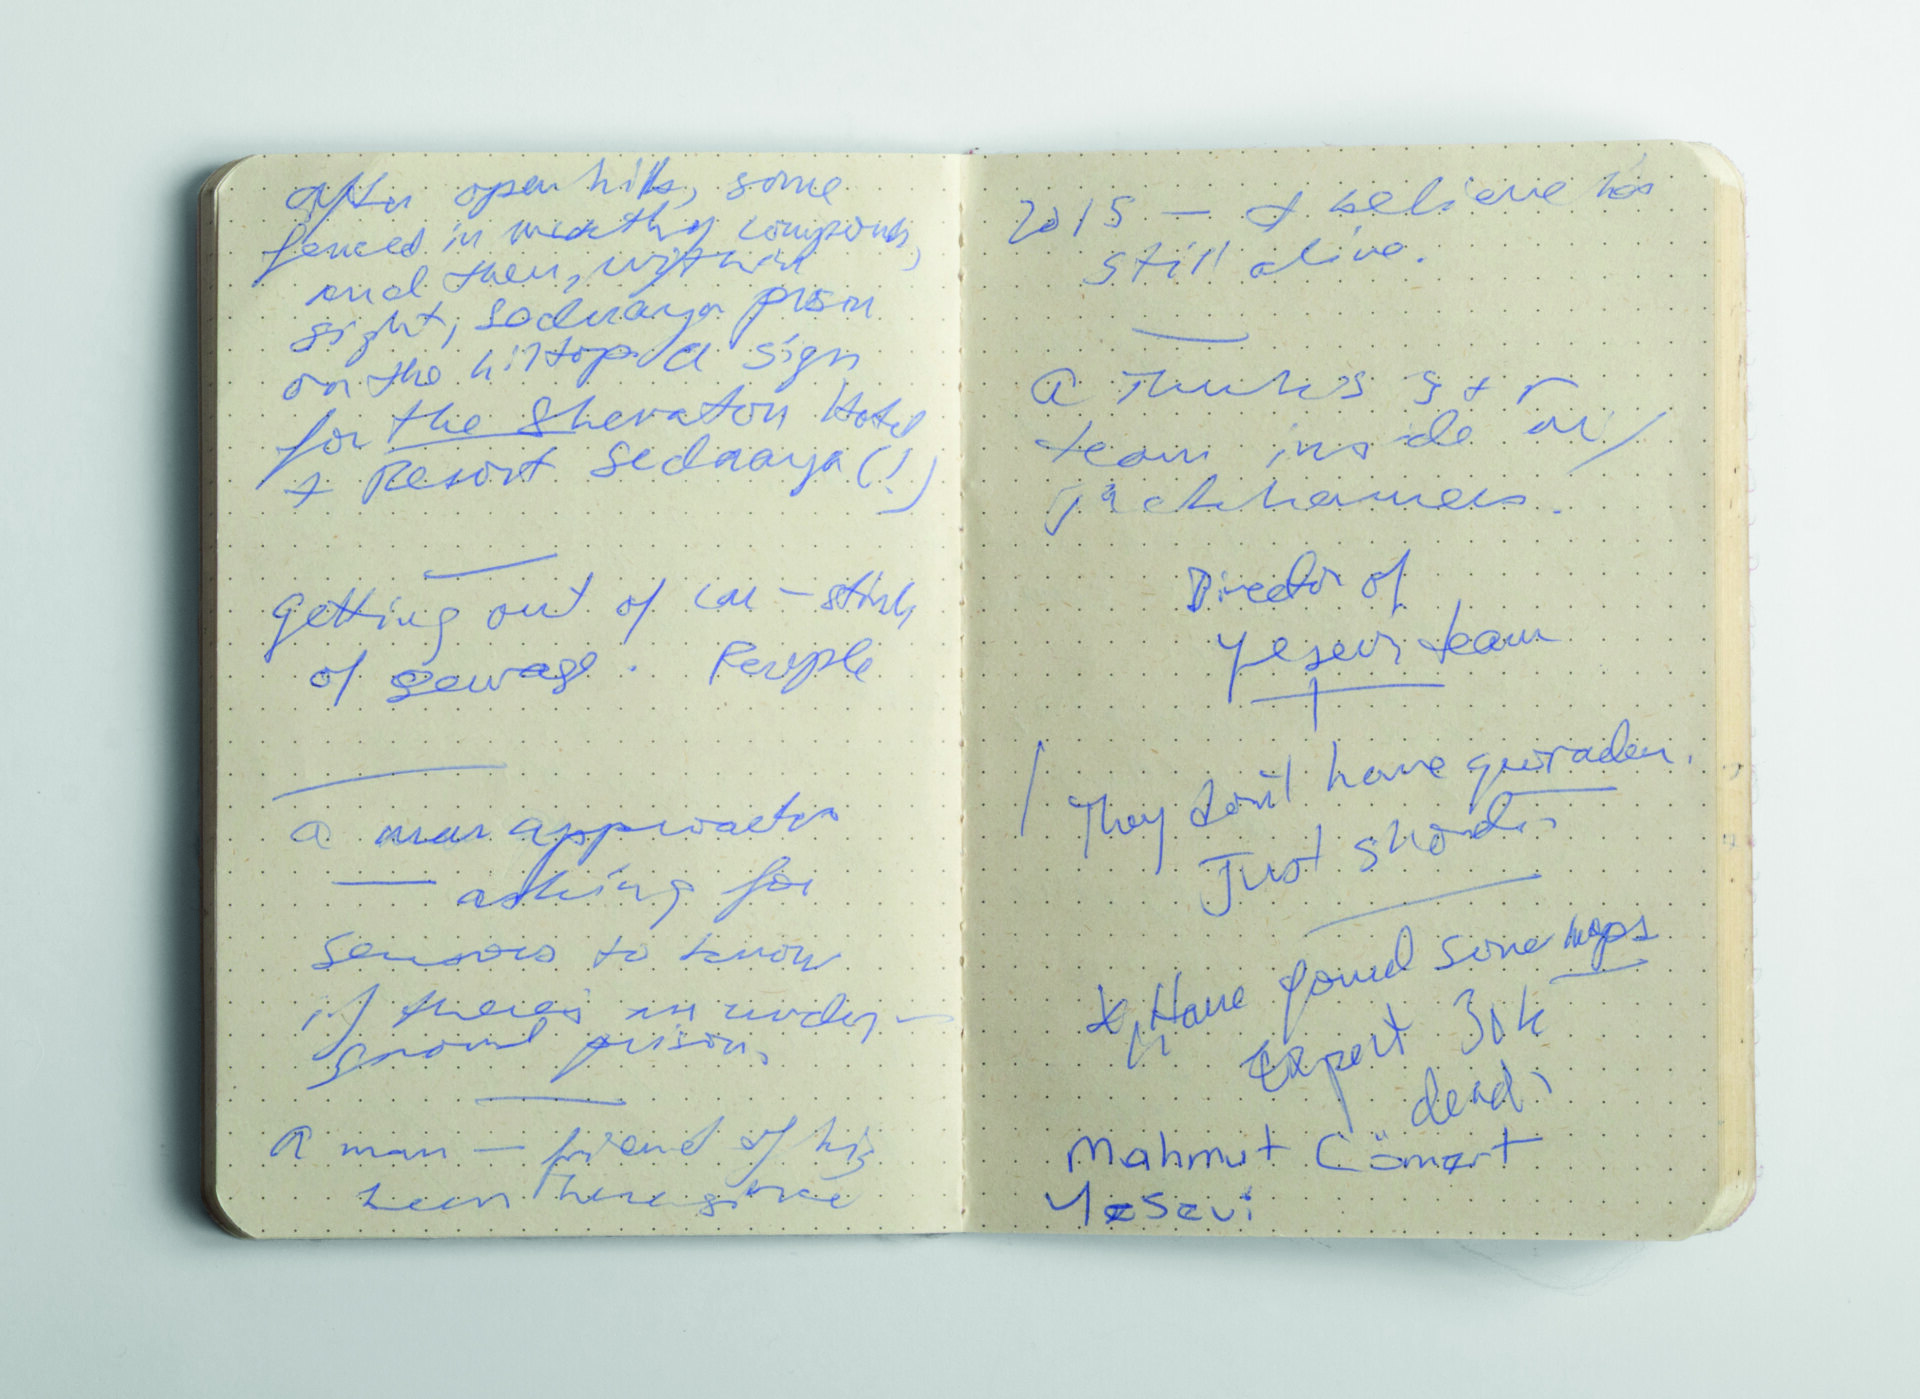 After open hills, some
fenced in wealthy compounds,
and then, within
sight, Sednaya prison
on the hilltop. a sign
for the Sheraton Hotel
+ Resort Sednaya (!)
Getting out of car – stink
of sewage. People
a man approaches
— asking for
sensors to know
if there's an under-
ground prison.
A man — friend of his
been here since
2015 — I believe he's
still alive.
a Turkish s + r
team inside w/
jackhammers.
Director of
Yesevi team
They don't have
Just
Have found some maps
Expect 30k
dead.
Mahmut Cömert
Yesevi